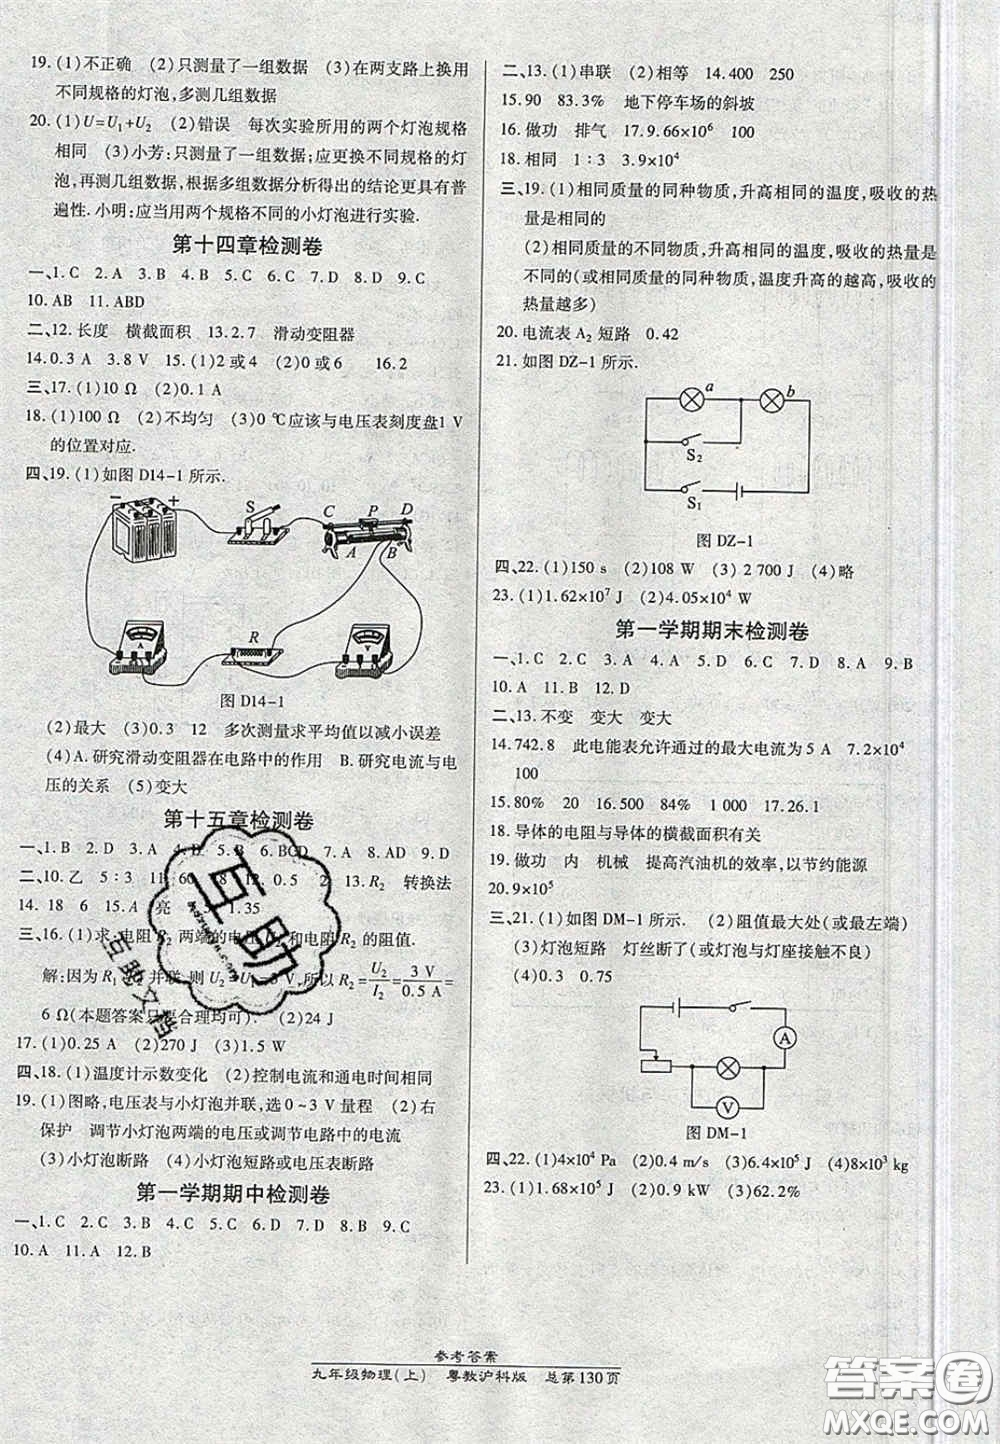 19. (1)不正确 (2)只测量了一组数据 (3)在两支路上换用
不同规格的灯泡,多测几组数据
20. (1)U=U₁+U₂ (2)错误 每次实验所用的两个灯泡规格
相同 (3)小芳:只测量了一组数据;应更换不同规格的灯
泡,再测几组数据,根据多组数据分析得出的结论更具有普
遍性. 小明:应当用两个规格不同的小灯泡进行实验.
第十四章检测卷
一、1. C 2. A 3. B 4. B 5. C 6. C 7. D 8. D 9. C
10. AB 11. ABD
二、12. 长度 横截面积 13. 2.7 滑动变阻器
14. 0.3 A 3.8 V 15. (1)2或4 (2)0或6 16. 2
三、17. (1)10 Ω (2)0.1 A
18. (1)100 Ω (2)不均匀 (3)0 ℃应该与电压表刻度盘1 V
的位置对应.
四、19. (1)如图 D14-1 所示.
− + S C P D
A B
A R V
图 D14-1
(2)最大 (3)0.3 12 多次测量求平均值以减小误差
(4)A. 研究滑动变阻器在电路中的作用 B. 研究电流与电
压的关系 (5)变大
第十五章检测卷
一、1. B 2. D 3. A 4. C 5. B 6. BCD 7. AD 8. AD 9. D
二、10. 乙 5∶3 11. 60 12. 0.5 2 13. R₂ 转换法
14. 18 6 15. A 亮 5 1.35
三、16. (1)求:电阻 R₂ 两端的电压 U₂ 和电阻 R₂ 的阻值.
解:因为 R₁ 与 R₂ 并联,则 U₂=U₁=3 V,所以 R₂=U₂/I₂=3 V/0.5 A=
6 Ω(本题答案只要合理均可). (2)24 J
17. (1)0.25 A (2)270 J (3)1.5 W
四、18. (1)温度计示数变化 (2)控制电流和通电时间相同
19. (1)图略,电压表与小灯泡并联,选 0~3 V 量程 (2)右
保护 调节小灯泡两端的电压或调节电路中的电流
(3)小灯泡断路 (4)小灯泡短路或电压表断路
第一学期期中检测卷
一、1. C 2. C 3. B 4. C 5. D 6. C 7. D 8. B 9. C
10. A 11. A 12. B
二、13. (1)串联 (2)相等 14. 400 250
15. 90 83.3% 地下停车场的斜坡
16. 做功 排气 17. 9.66×10⁶ 100
18. 相同 1∶3 3.9×10⁴
三、19. (1)相同质量的同种物质,升高相同的温度,吸收的热
量是相同的
(2)相同质量的不同物质,升高相同的温度,吸收的热量是
不同的(或相同质量的同种物质,温度升高的越高,吸收的
热量越多)
20. 电流表 A₂ 短路 0.42
21. 如图 DZ-1 所示.
a b
S₂
S₁
图 DZ-1
四、22. (1)150 s (2)108 W (3)2 700 J (4)略
23. (1)1.62×10⁷ J (2)4.05×10⁴ W
第一学期期末检测卷
一、1. C 2. C 3. A 4. A 5. D 6. C 7. D 8. A 9. B
10. A 11. A 12. D
二、13. 不变 变大 变大
14. 742.8 此电能表允许通过的最大电流为 5 A 7.2×10⁴
100
15. 80% 20 16. 500 84% 1 000 17. 26.1
18. 导体的电阻与导体的横截面积有关
19. 做功 内 机械 提高汽油机的效率,以节约能源
20. 9×10⁵
三、21. (1)如图 DM-1 所示. (2)阻值最大处(或最左端)
(3)灯泡短路 灯丝断了(或灯泡与灯座接触不良)
(4)0.3 0.75
A
V
图 DM-1
四、22. (1)4×10⁴ Pa (2)0.4 m/s (3)6.4×10⁴ J (4)8×10³ kg
23. (1)1.68×10⁵ J (2)0.9 kW (3)62.2%
互助
互助文档
参考答案
九年级物理(上) 粤教沪科版 总第130页
答案圈
MXQE.COM